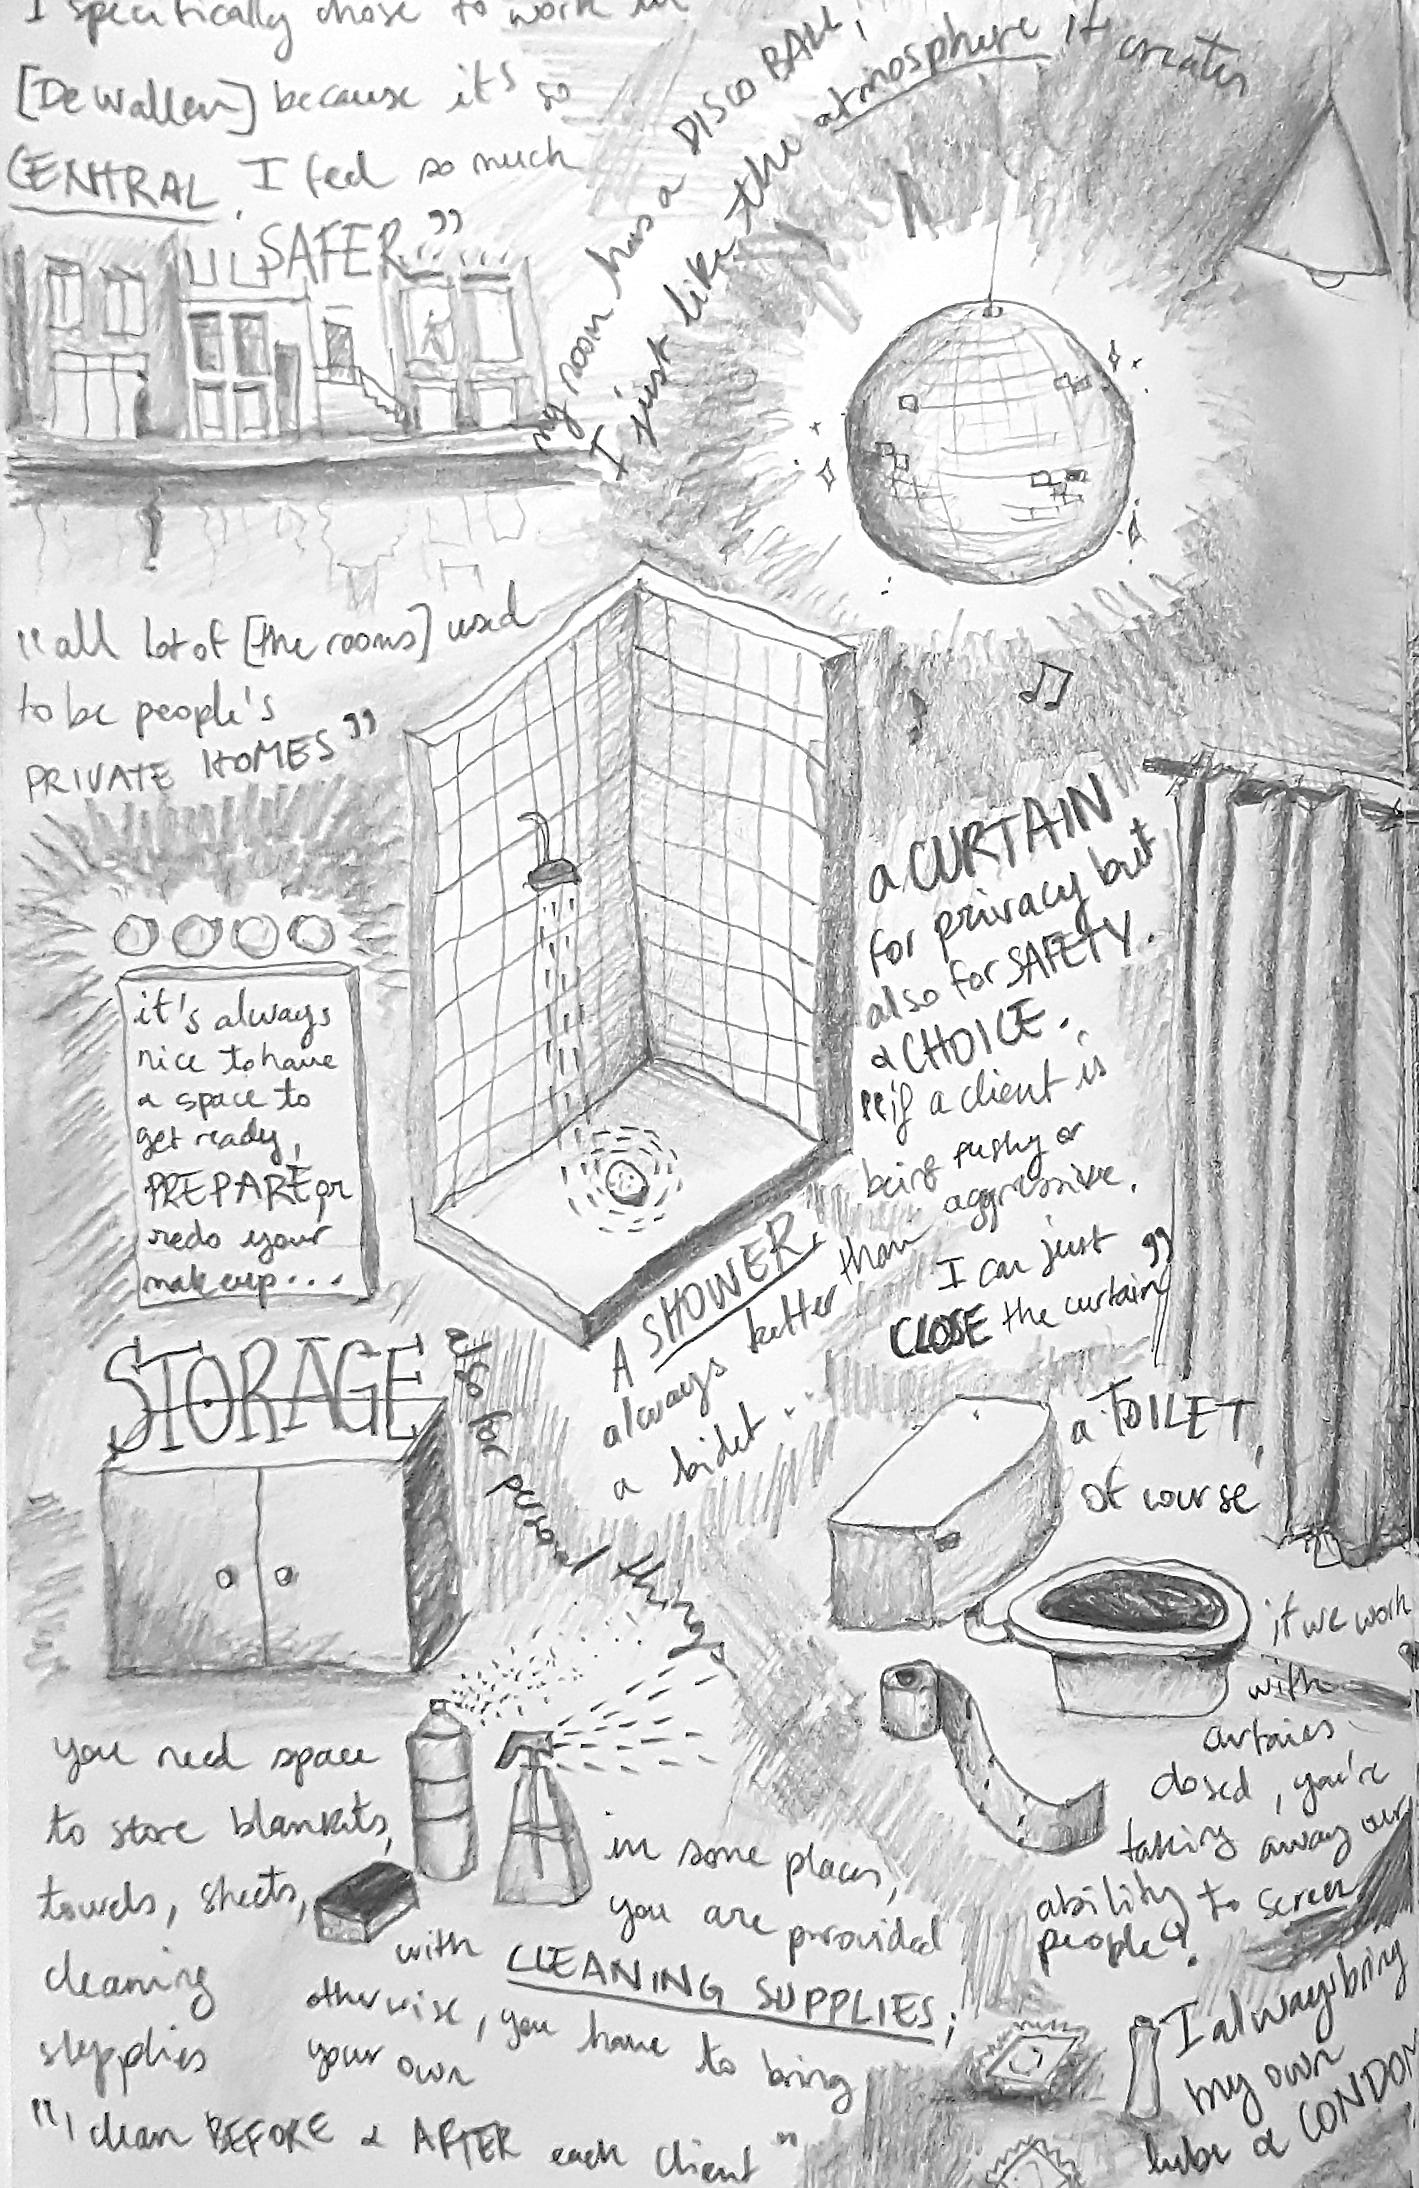 I specifically chose to work in
[De Wallen] because it's so
CENTRAL. I feel so much
SAFER"
my room has a DISCO BALL,
I just like the atmosphere it creates
"all lot of [the rooms] used
to be people's
PRIVATE HOMES"
it's always
nice to have
a space to
get ready,
PREPARE or
redo your
makeup...
a CURTAIN
for privacy but
also for SAFETY.
& CHOICE.
"if a client is
being pushy or
aggressive.
I can just
CLOSE the curtain"
A SHOWER,
always better than
a bidet...
STORAGE
also for personal things
a TOILET,
of course
you need space
to store blankets,
towels, sheets,
cleaning
supplies
in some places,
you are provided
with CLEANING SUPPLIES;
otherwise, you have to bring
your own
"I clean BEFORE & AFTER each client"
if we work
with
curtains
closed, you're
taking away our
ability to screen
people".
I always bring
my own
lube & CONDOM